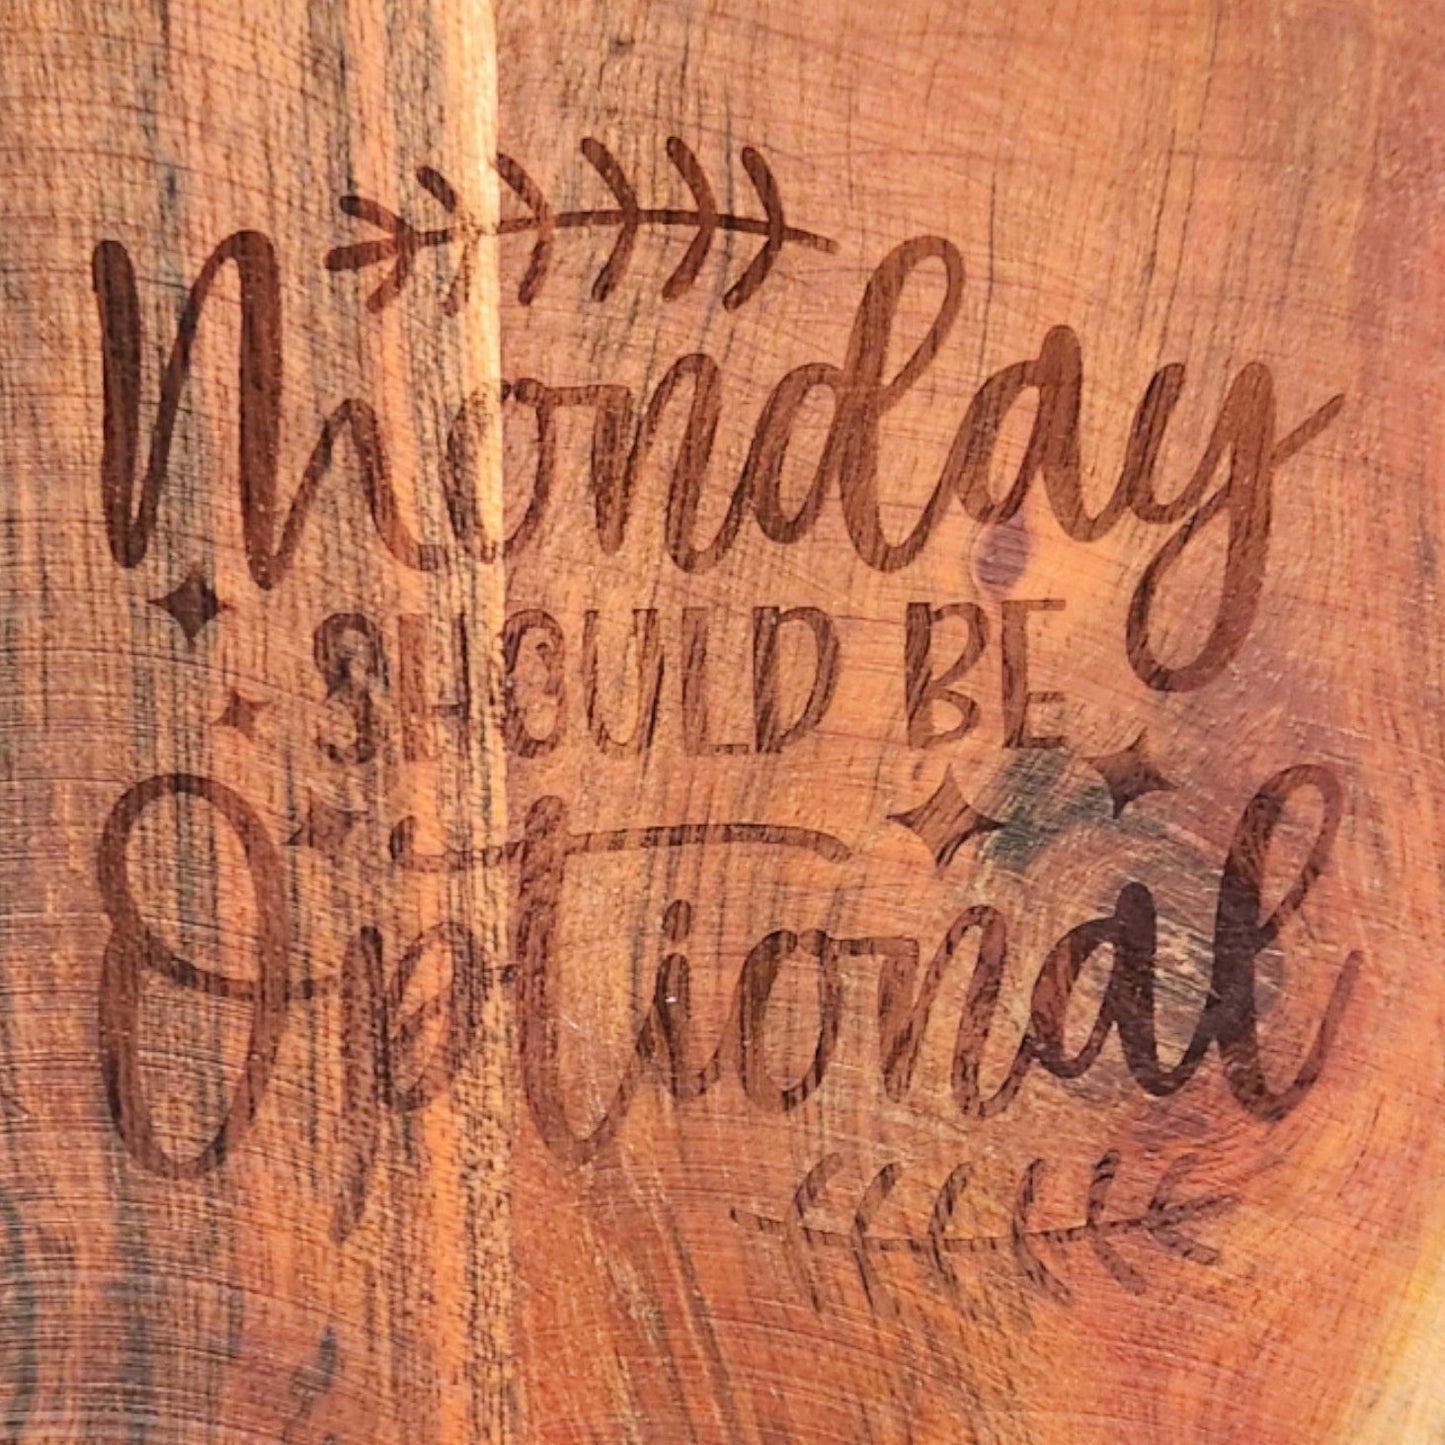 Monday
SHOULD BE
Optional